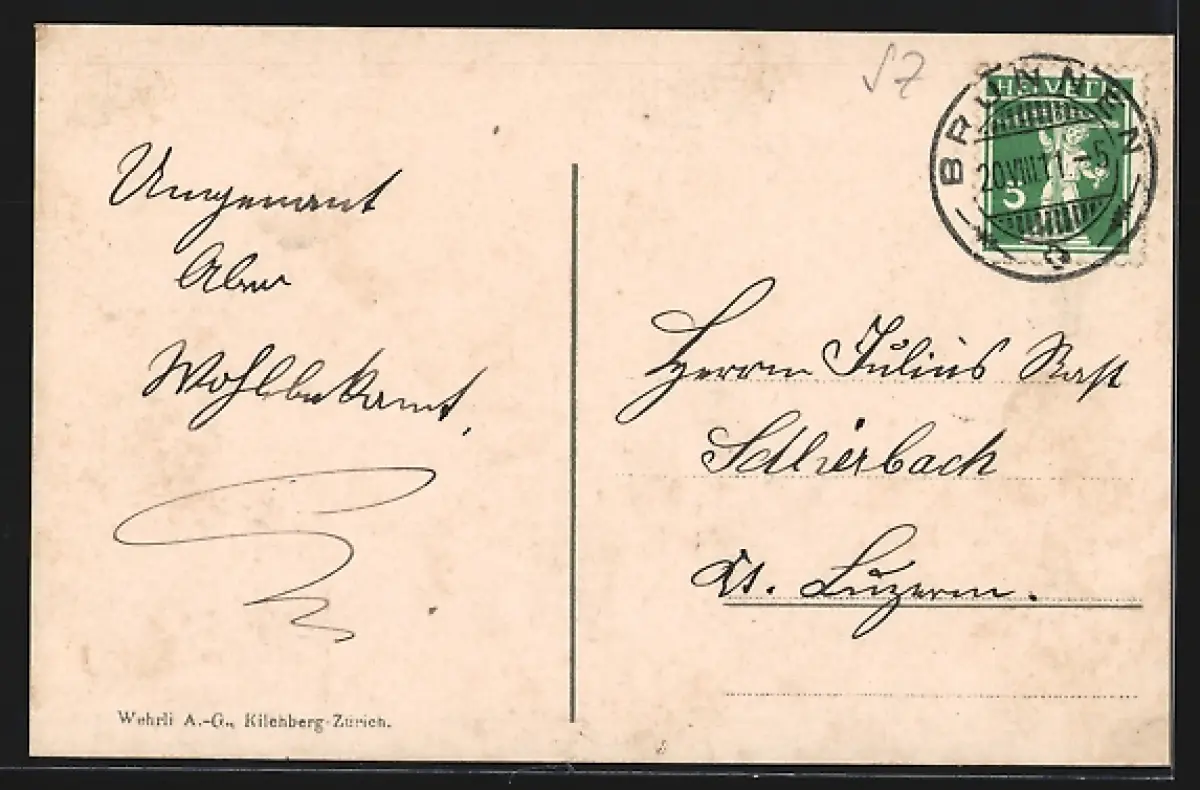 Ungenannt
Aber
Wohlbekannt,
Wehrli A.-G., Kilchberg-Zürich.
SZ
BRUNNEN
HELVETIA
20.VIII.11.-5
5
Herrn Julius Rast
Schlierbach
Kt. Luzern.